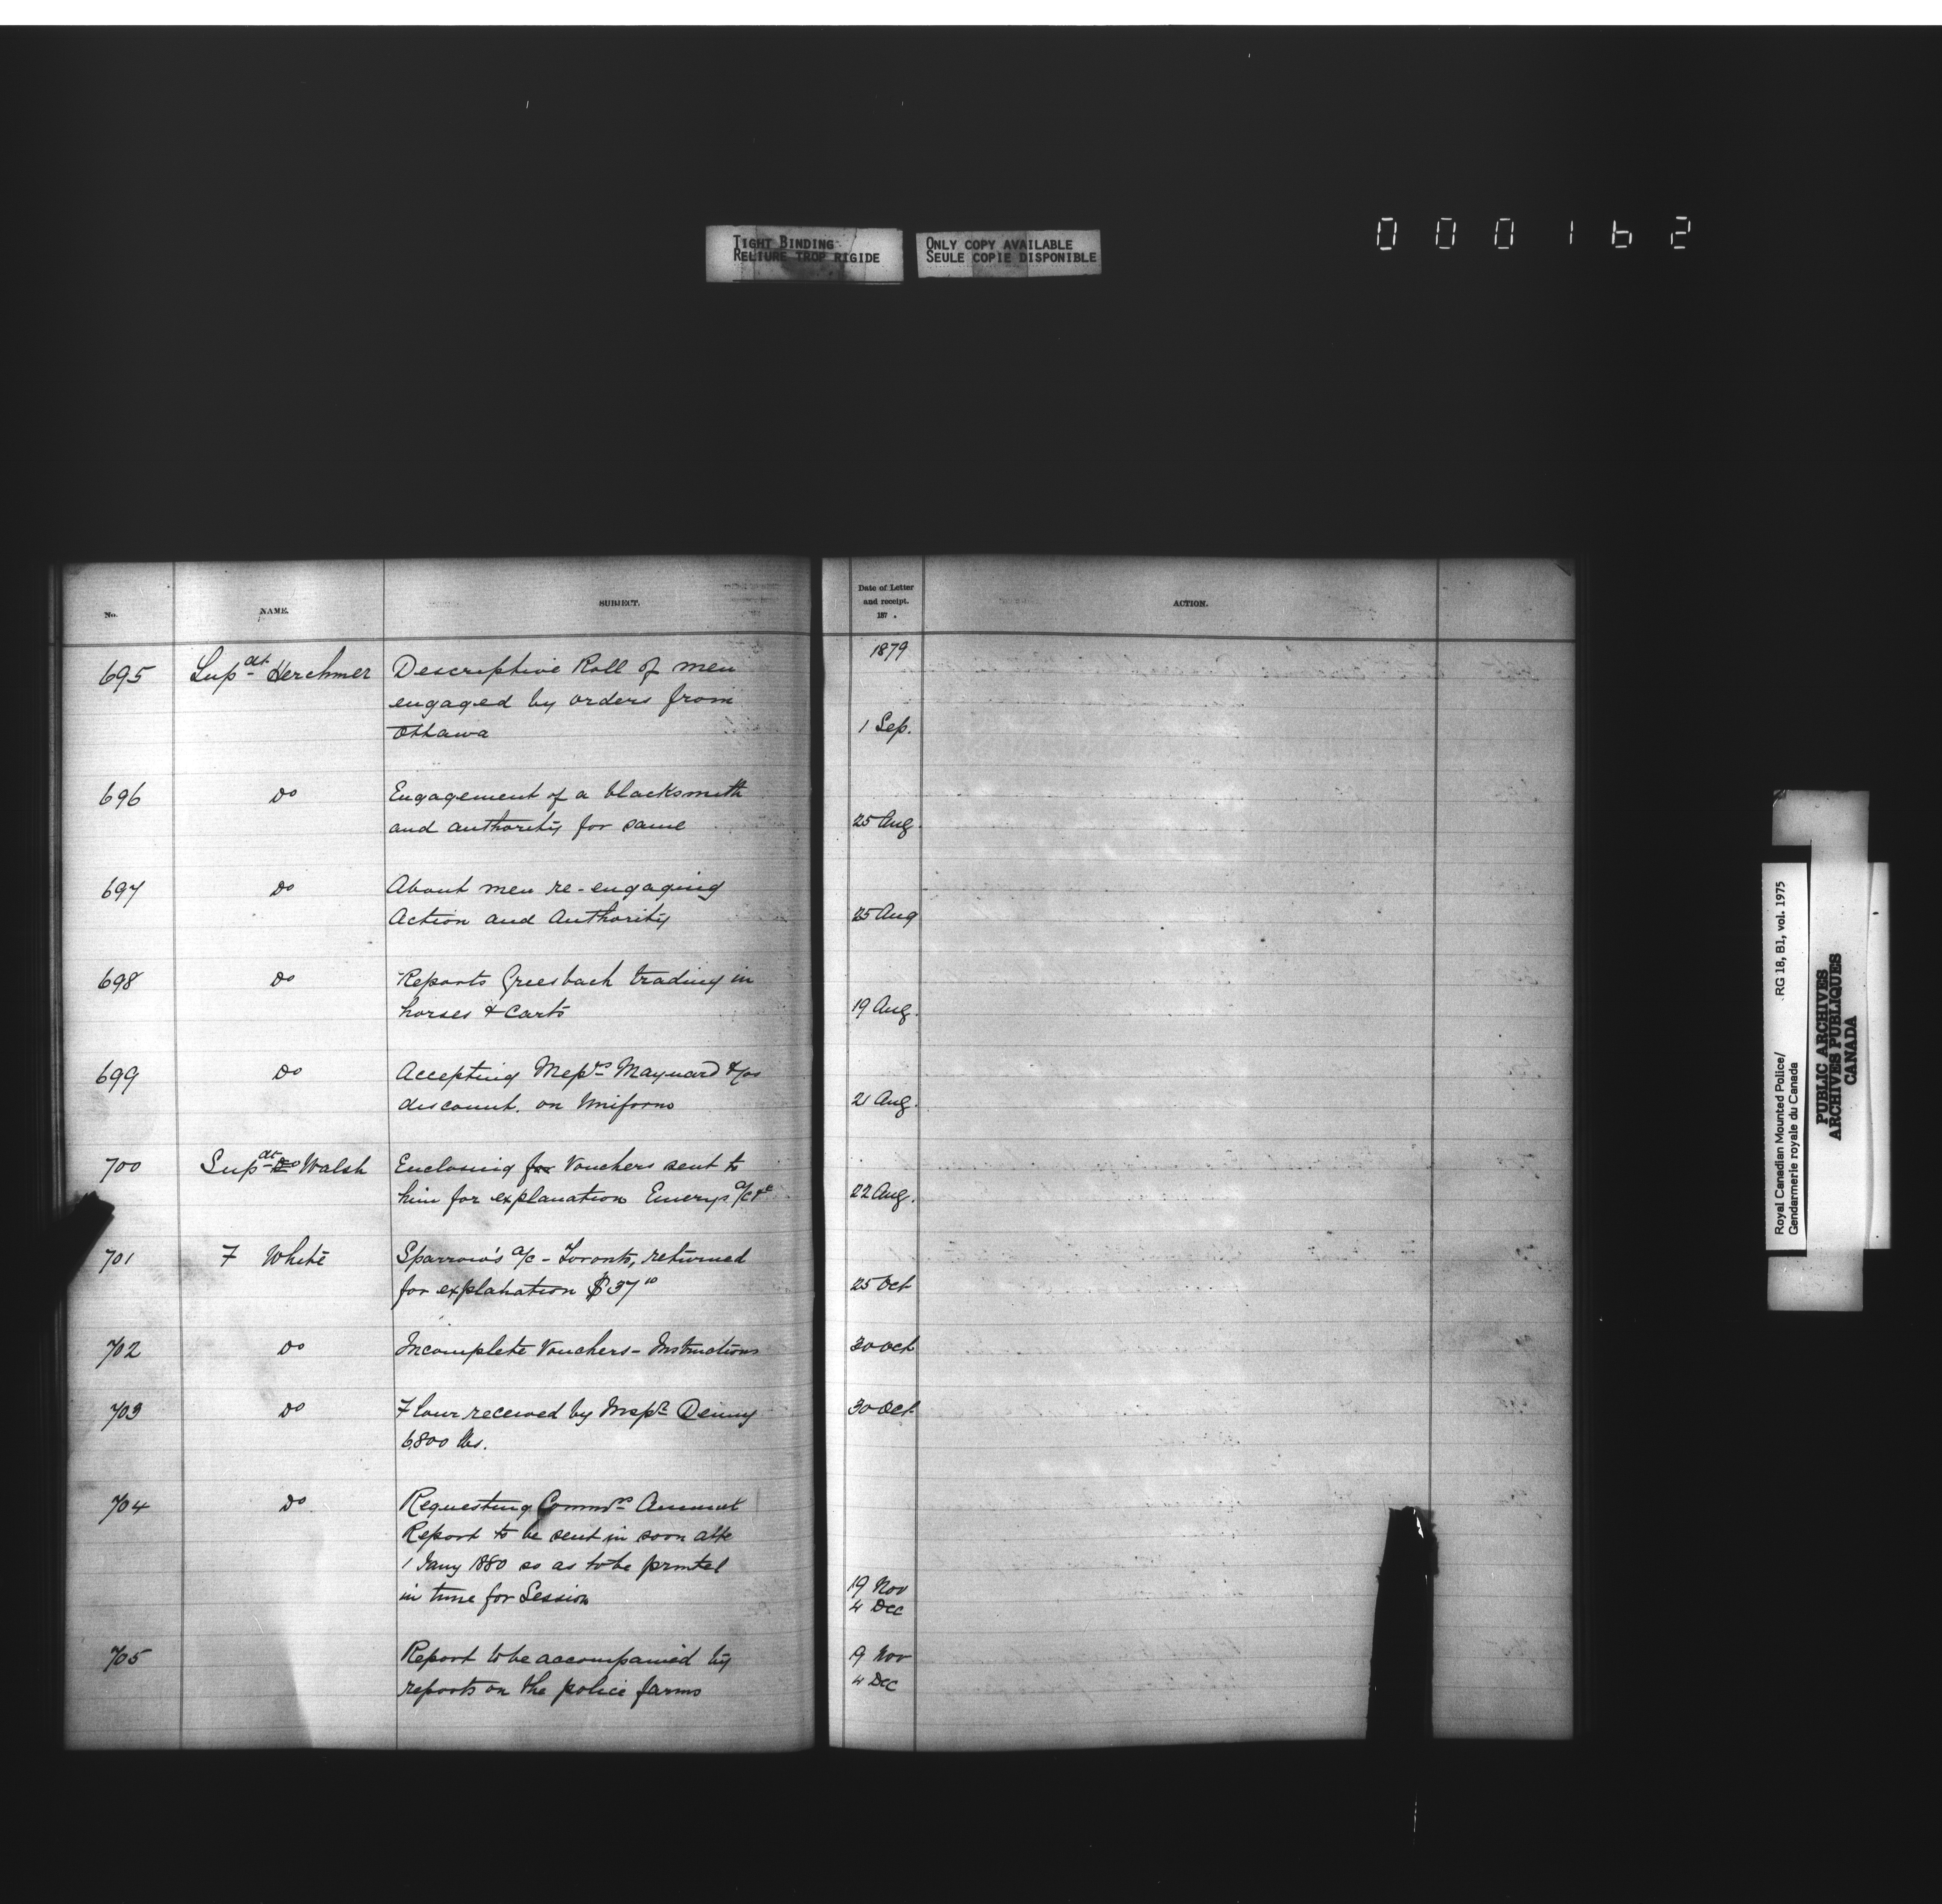 TIGHT BINDING
RELIURE TROP RIGIDE
ONLY COPY AVAILABLE
SEULE COPIE DISPONIBLE
000162
No.
NAME.
SUBJECT.
Date of Letter
and receipt.
187 .
ACTION.
1879
695 Supdt Herchmer Descriptive Roll of men
engaged by orders from
Ottawa 1 Sep.
696 Do Engagement of a blacksmith
and authority for same 25 Aug.
697 Do About men re-engaging
Action and Authority 25 Aug
698 Do Reports Griesbach trading in
horses & carts 19 Aug.
699 Do Accepting Messrs Maynard &
discount. on Uniforms 21 Aug.
700 Supdt Do Walsh Enclosing for Vouchers sent to
him for explanation Emerys a/c &c 22 Aug.
701 F White Sparrow's a/c - Toronto, returned
for explanation $37 10 25 Oct
702 Do Incomplete Vouchers - Instructions 30 Oct
703 Do Flour received by Inspr Denny 30 Oct
6,800 lbs.
704 Do Requesting Commrs Annual
Report to be sent in soon afte
1 Jany 1880 so as to be printed
in time for Session 19 Nov
4 Dec
705 Report to be accompanied by 19 Nov
reports on the police farms 4 Dec
Royal Canadian Mounted Police/ RG 18, B1, vol. 1975
Gendarmerie royale du Canada
PUBLIC ARCHIVES
ARCHIVES PUBLIQUES
CANADA